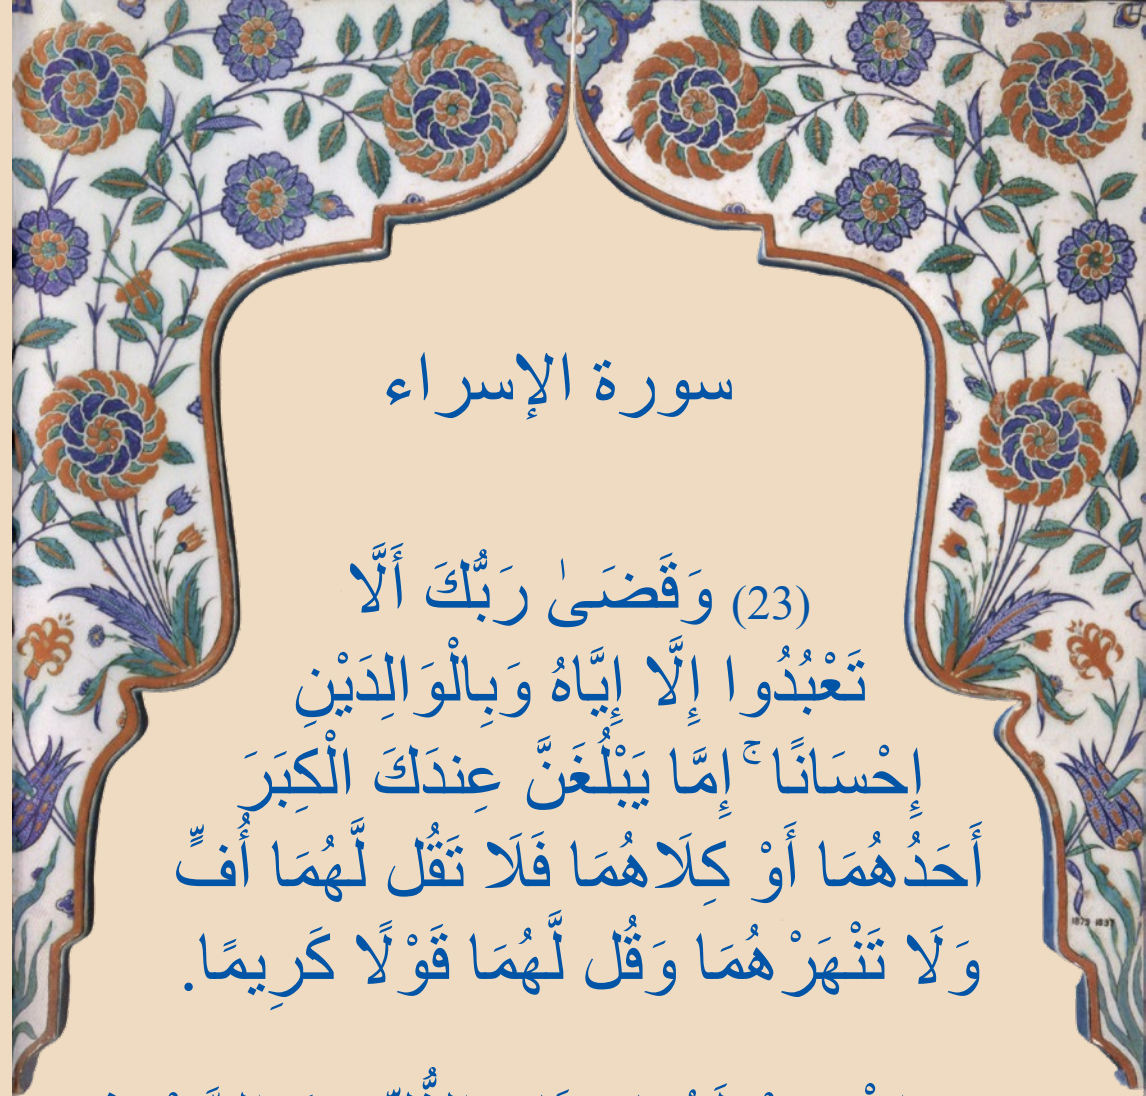 سورة الإسراء
(23) وَقَضَىٰ رَبُّكَ أَلَّا
تَعْبُدُوا إِلَّا إِيَّاهُ وَبِالْوَالِدَيْنِ
إِحْسَانًا ۚ إِمَّا يَبْلُغَنَّ عِندَكَ الْكِبَرَ
أَحَدُهُمَا أَوْ كِلَاهُمَا فَلَا تَقُل لَّهُمَا أُفٍّ
وَلَا تَنْهَرْهُمَا وَقُل لَّهُمَا قَوْلًا كَرِيمًا.
1879 1897